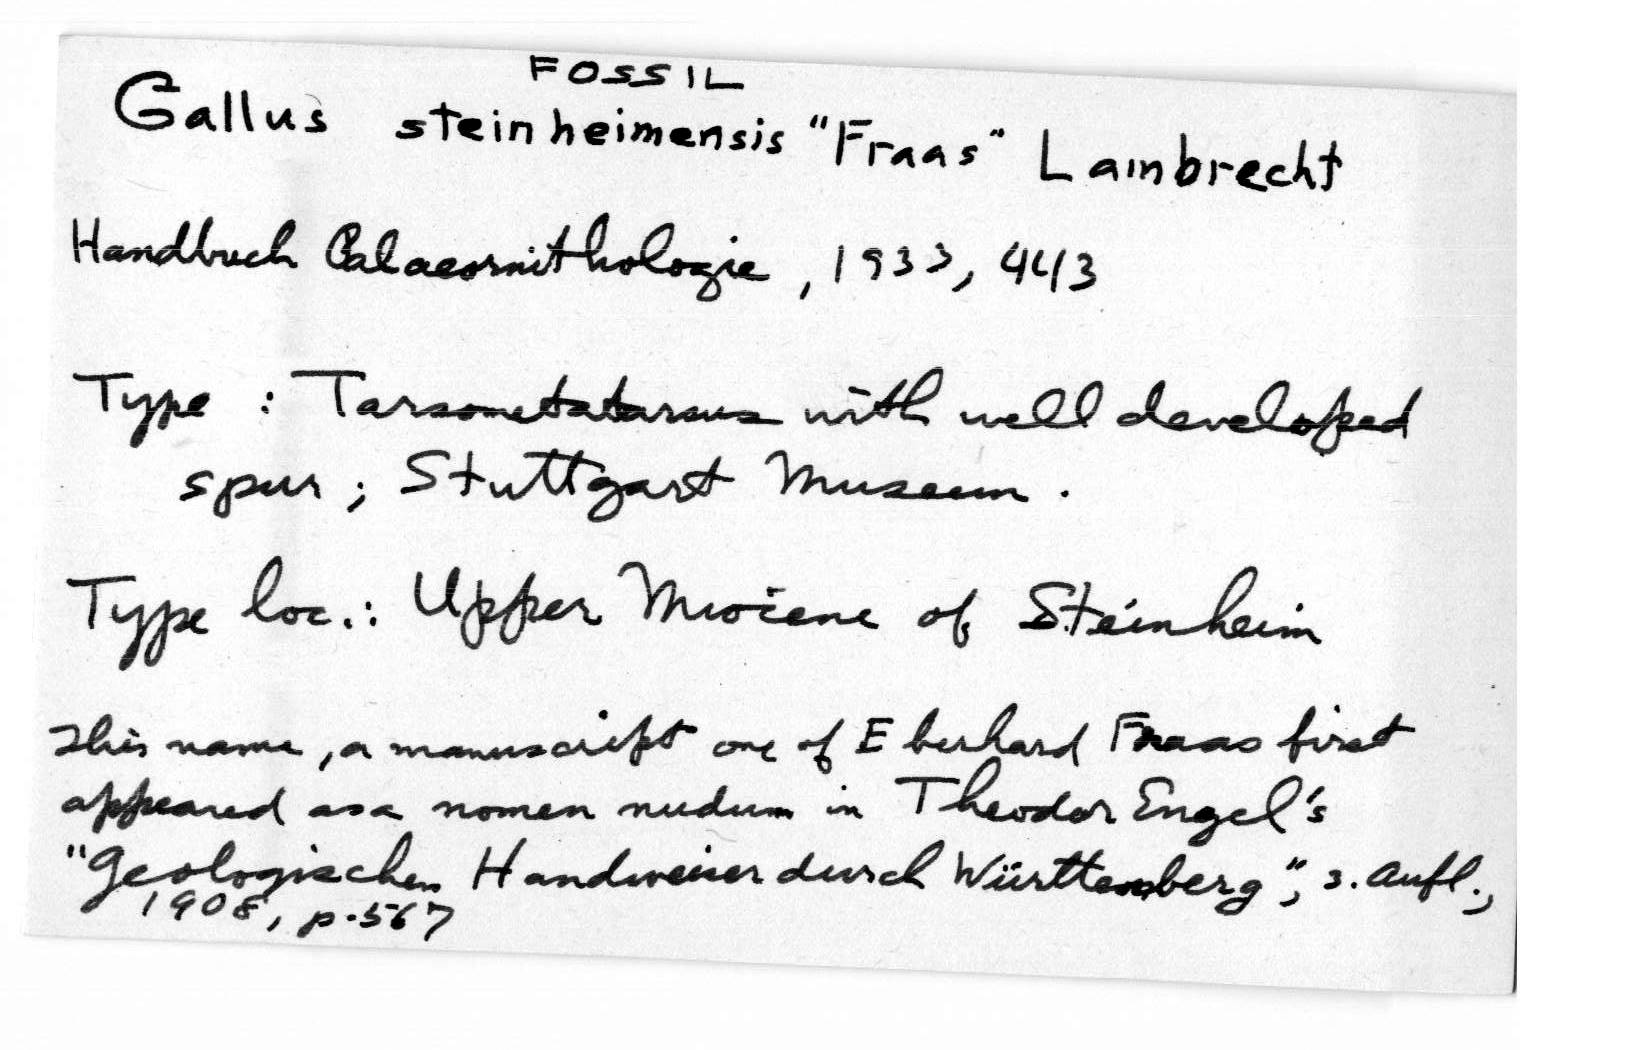 FOSSIL
Gallus steinheimensis "Fraas" Lambrecht
Handbuch Palaeornithologie, 1933, 443
Type : Tarsometatarsus with well developed
spur ; Stuttgart Museum .
Type loc. : Upper Miocene of Steinheim
This name, a manuscript one of Eberhard Fraas first
appeared as a nomen nudum in Theodor Engel's
"Geologischen Handweiser durch Württemberg", 3. Aufl.,
1908, p. 567